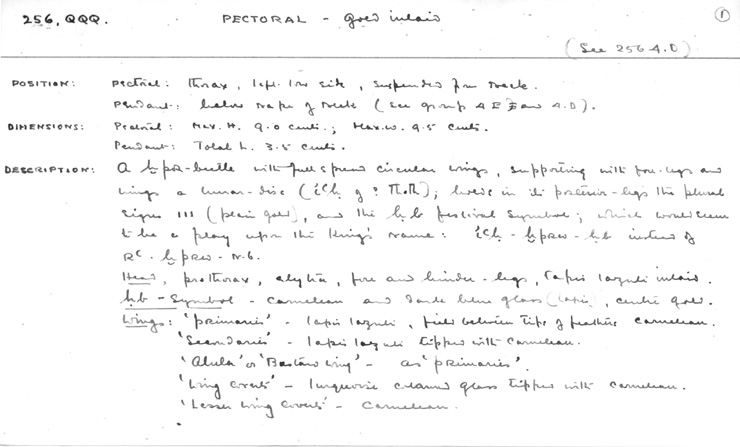 256, QQQ. PECTORAL - Gold inlaid ①
(See 256 4.D)
POSITION: Pectoral: thorax, left. side, suspended from neck.
Pendant: below nape of neck (see group 4 E and 4.D).
DIMENSIONS: Pectoral: Max. H. 9.0 cents.; Max. W. 9.5 cents.
Pendant: Total L. 3.5 cents.
DESCRIPTION: A ḫpr-beetle with full spread circular wings, supporting with fore-legs and
wings a lunar-disc (iꜥḥ of ? Thoth); holds in its posterior-legs the plural
signs III (plain gold), and the ḥb festival symbol; which would seem
to be a play upon the King's name: iꜥḥ - ḫprw - ḥb instead of
Rꜥ - ḫprw - nb.
Head, prothorax, elytra, fore and hinder-legs, lapis lazuli inlaid.
ḥb - Symbol - carnelian and dark blue glass (lapis), centre gold.
Wings: 'primaries' - lapis lazuli, field between tips of feathers carnelian.
'Secondaries' - lapis lazuli tipped with carnelian.
'Alula' or 'Bastard wing' - as 'primaries'.
'Wing coverts' - turquoise coloured glass tipped with carnelian.
'Lesser wing coverts' - carnelian.